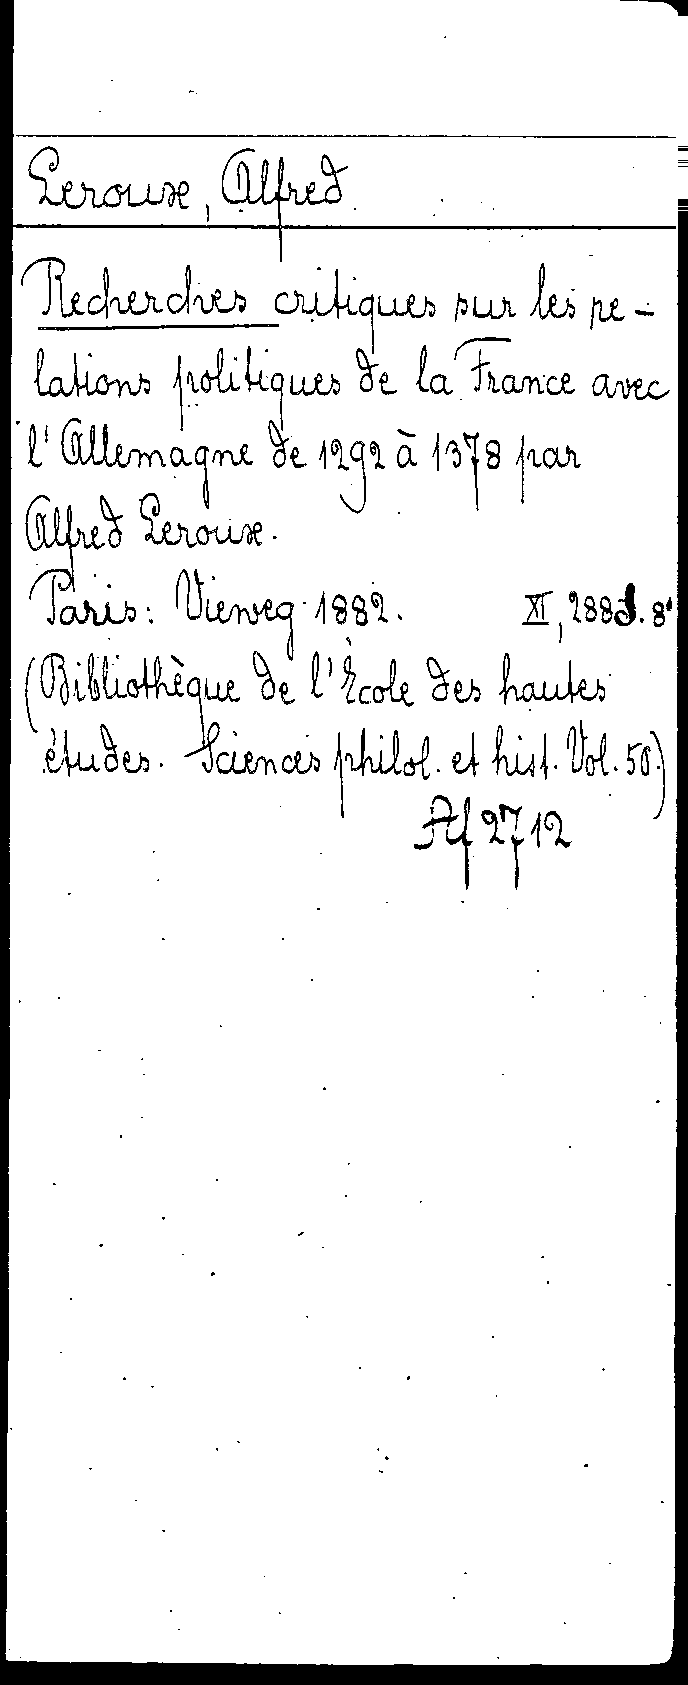 Leroux, Alfred
Recherches critiques sur les re-
lations politiques de la France avec
l'Allemagne de 1292 à 1378 par
Alfred Leroux.
Paris: Vieweg 1882. XI, 288 S. 8°
(Bibliothèque de l'École des hautes
études. Sciences philol. et hist. Vol. 50.)
Af 2712